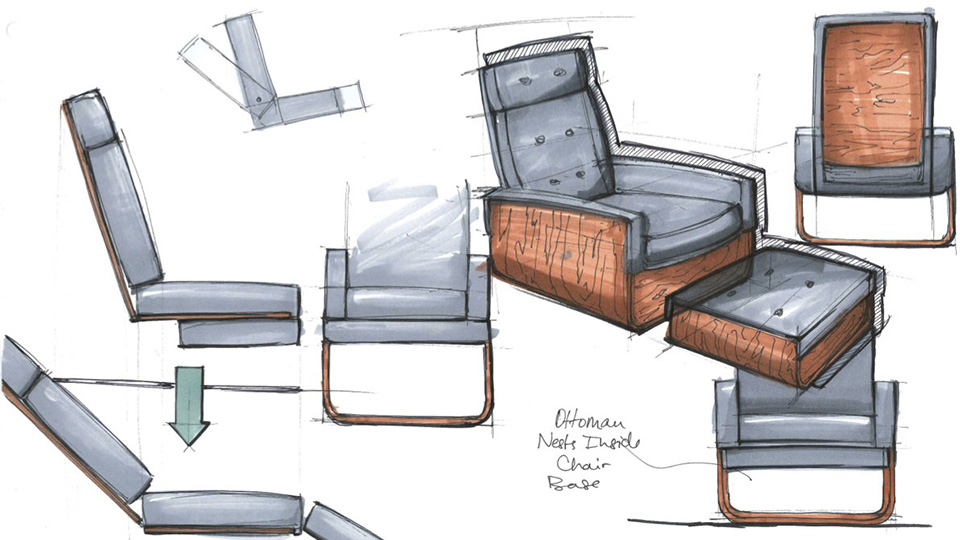 Ottoman
Nests Inside
Chair
Base